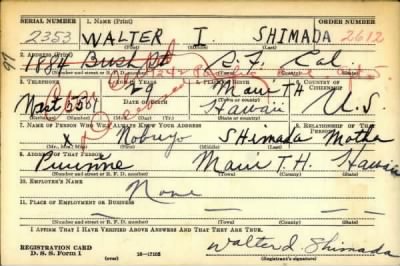 SERIAL NUMBER 1. NAME (Print) ORDER NUMBER
2353 WALTER I. SHIMADA 2612
(First) (Middle) (Last)
2. ADDRESS (Print)
1884 Bush St S.F. Cal
(Number and street or R. F. D. number) (Town) (County) (State)
3. TELEPHONE 4. AGE IN YEARS 5. PLACE OF BIRTH 6. COUNTRY OF CITIZENSHIP
29 Maui TH
West 5551 DATE OF BIRTH Hawaii U.S.
7. NAME OF PERSON WHO WILL ALWAYS KNOW YOUR ADDRESS 8. RELATIONSHIP OF THAT PERSON
Nobuyo Shimada Mother
(Mr., Mrs., Miss) (First) (Middle) (Last)
9. ADDRESS OF THAT PERSON
Puunene Maui T.H. Hawaii
(Number and street or R. F. D. number) (Town) (County) (State)
10. EMPLOYER'S NAME
None
11. PLACE OF EMPLOYMENT OR BUSINESS
(Number and street or R. F. D. number) (Town) (County) (State)
I AFFIRM THAT I HAVE VERIFIED ABOVE ANSWERS AND THAT THEY ARE TRUE.
REGISTRATION CARD
D. S. S. Form 1 16-17105 Walter I. Shimada
(Registrant's signature)